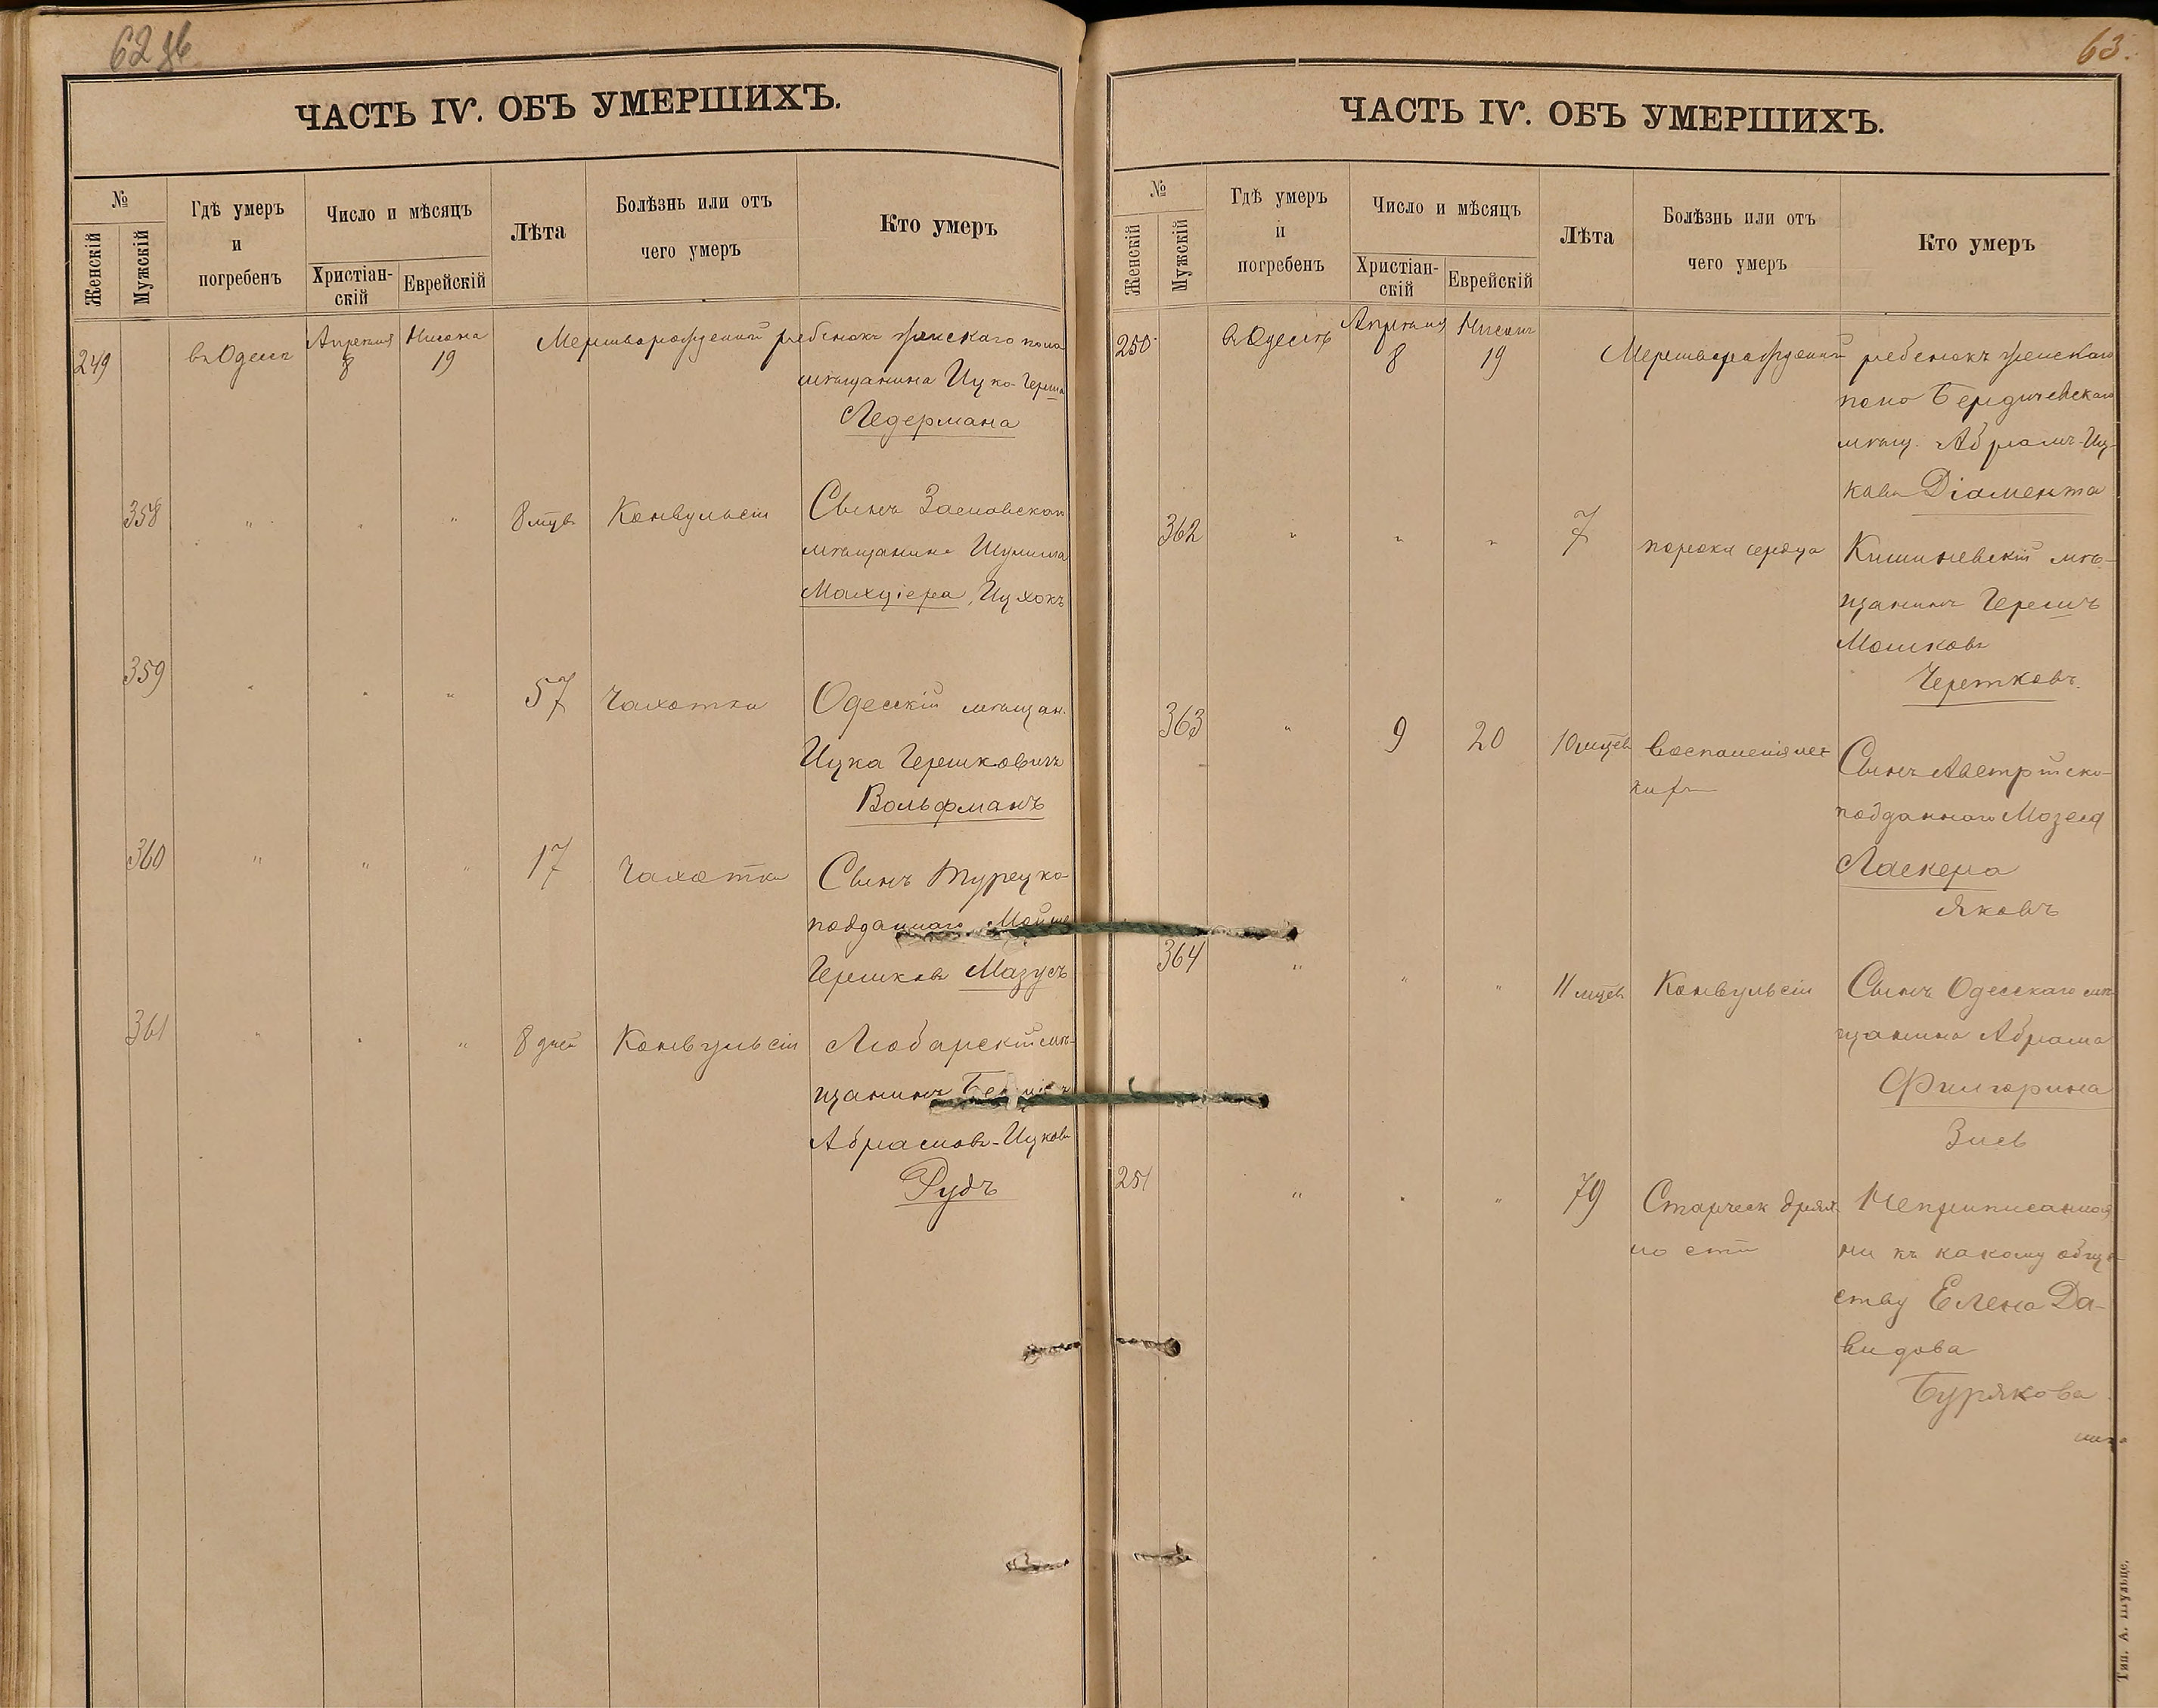 62 об
ЧАСТЬ IV. ОБЪ УМЕРШИХЪ.
№
Женскій
Мужскій
Гдѣ умеръ
и
погребенъ
Число и мѣсяцъ
Христіан-
скій
Еврейскій
Лѣта
Болѣзнь или отъ
чего умеръ
Кто умеръ
249 въ Одессѣ Апрѣля 8 Нисана 19 Мертворожденный ребенокъ женскаго пола
мѣщанина Ицко-Герша
Ледермана
358 " " " 8 мцвъ Конвульсіи Сынъ Заславскаго
мѣщанина Шулима
Махціера, Ицхокъ
359 " " " 57 Чахотки Одесскій мѣщан.
Ицка Гершковичъ
Вольфманъ
360 " " " 17 Чахотки Сынъ Турецко
подданнаго Мойше
Гершковъ Мазусъ
361 " " " 8 дней Конвульсіи Любарскій мѣ-
щанинъ
Абрамовъ-Ицковъ
Рудъ
63.
ЧАСТЬ IV. ОБЪ УМЕРШИХЪ.
№
Женскій
Мужскій
Гдѣ умеръ
и
погребенъ
Число и мѣсяцъ
Христіан-
скій
Еврейскій
Лѣта
Болѣзнь или отъ
чего умеръ
Кто умеръ
250 въ Одессѣ Апрѣля 8 Нисана 19 Мертворожденный ребенокъ женскаго
пола Бердичевскаго
мѣщ. Абрамъ-Иц-
кова Діамента
362 " " " 7 порока сердца Кишиневскій мѣ-
щанинъ Гершъ
Мошковъ
Черетковъ.
363 " 9 20 10 мцевъ воспаленія лег
кихъ
Сынъ Австрійско-
подданнаго Мозеса
Ласкера
Яковъ
364 " " " 11 мцевъ Конвульсіи Сынъ Одесскаго мѣ-
щанина Абрама
Филюрина
Зисъ
251 " " " 79 Старческ дрях
лости
Неприписанная
ни къ какому обще
ству Елена Да-
видова
Бурякова
Тип. А. Шульце.